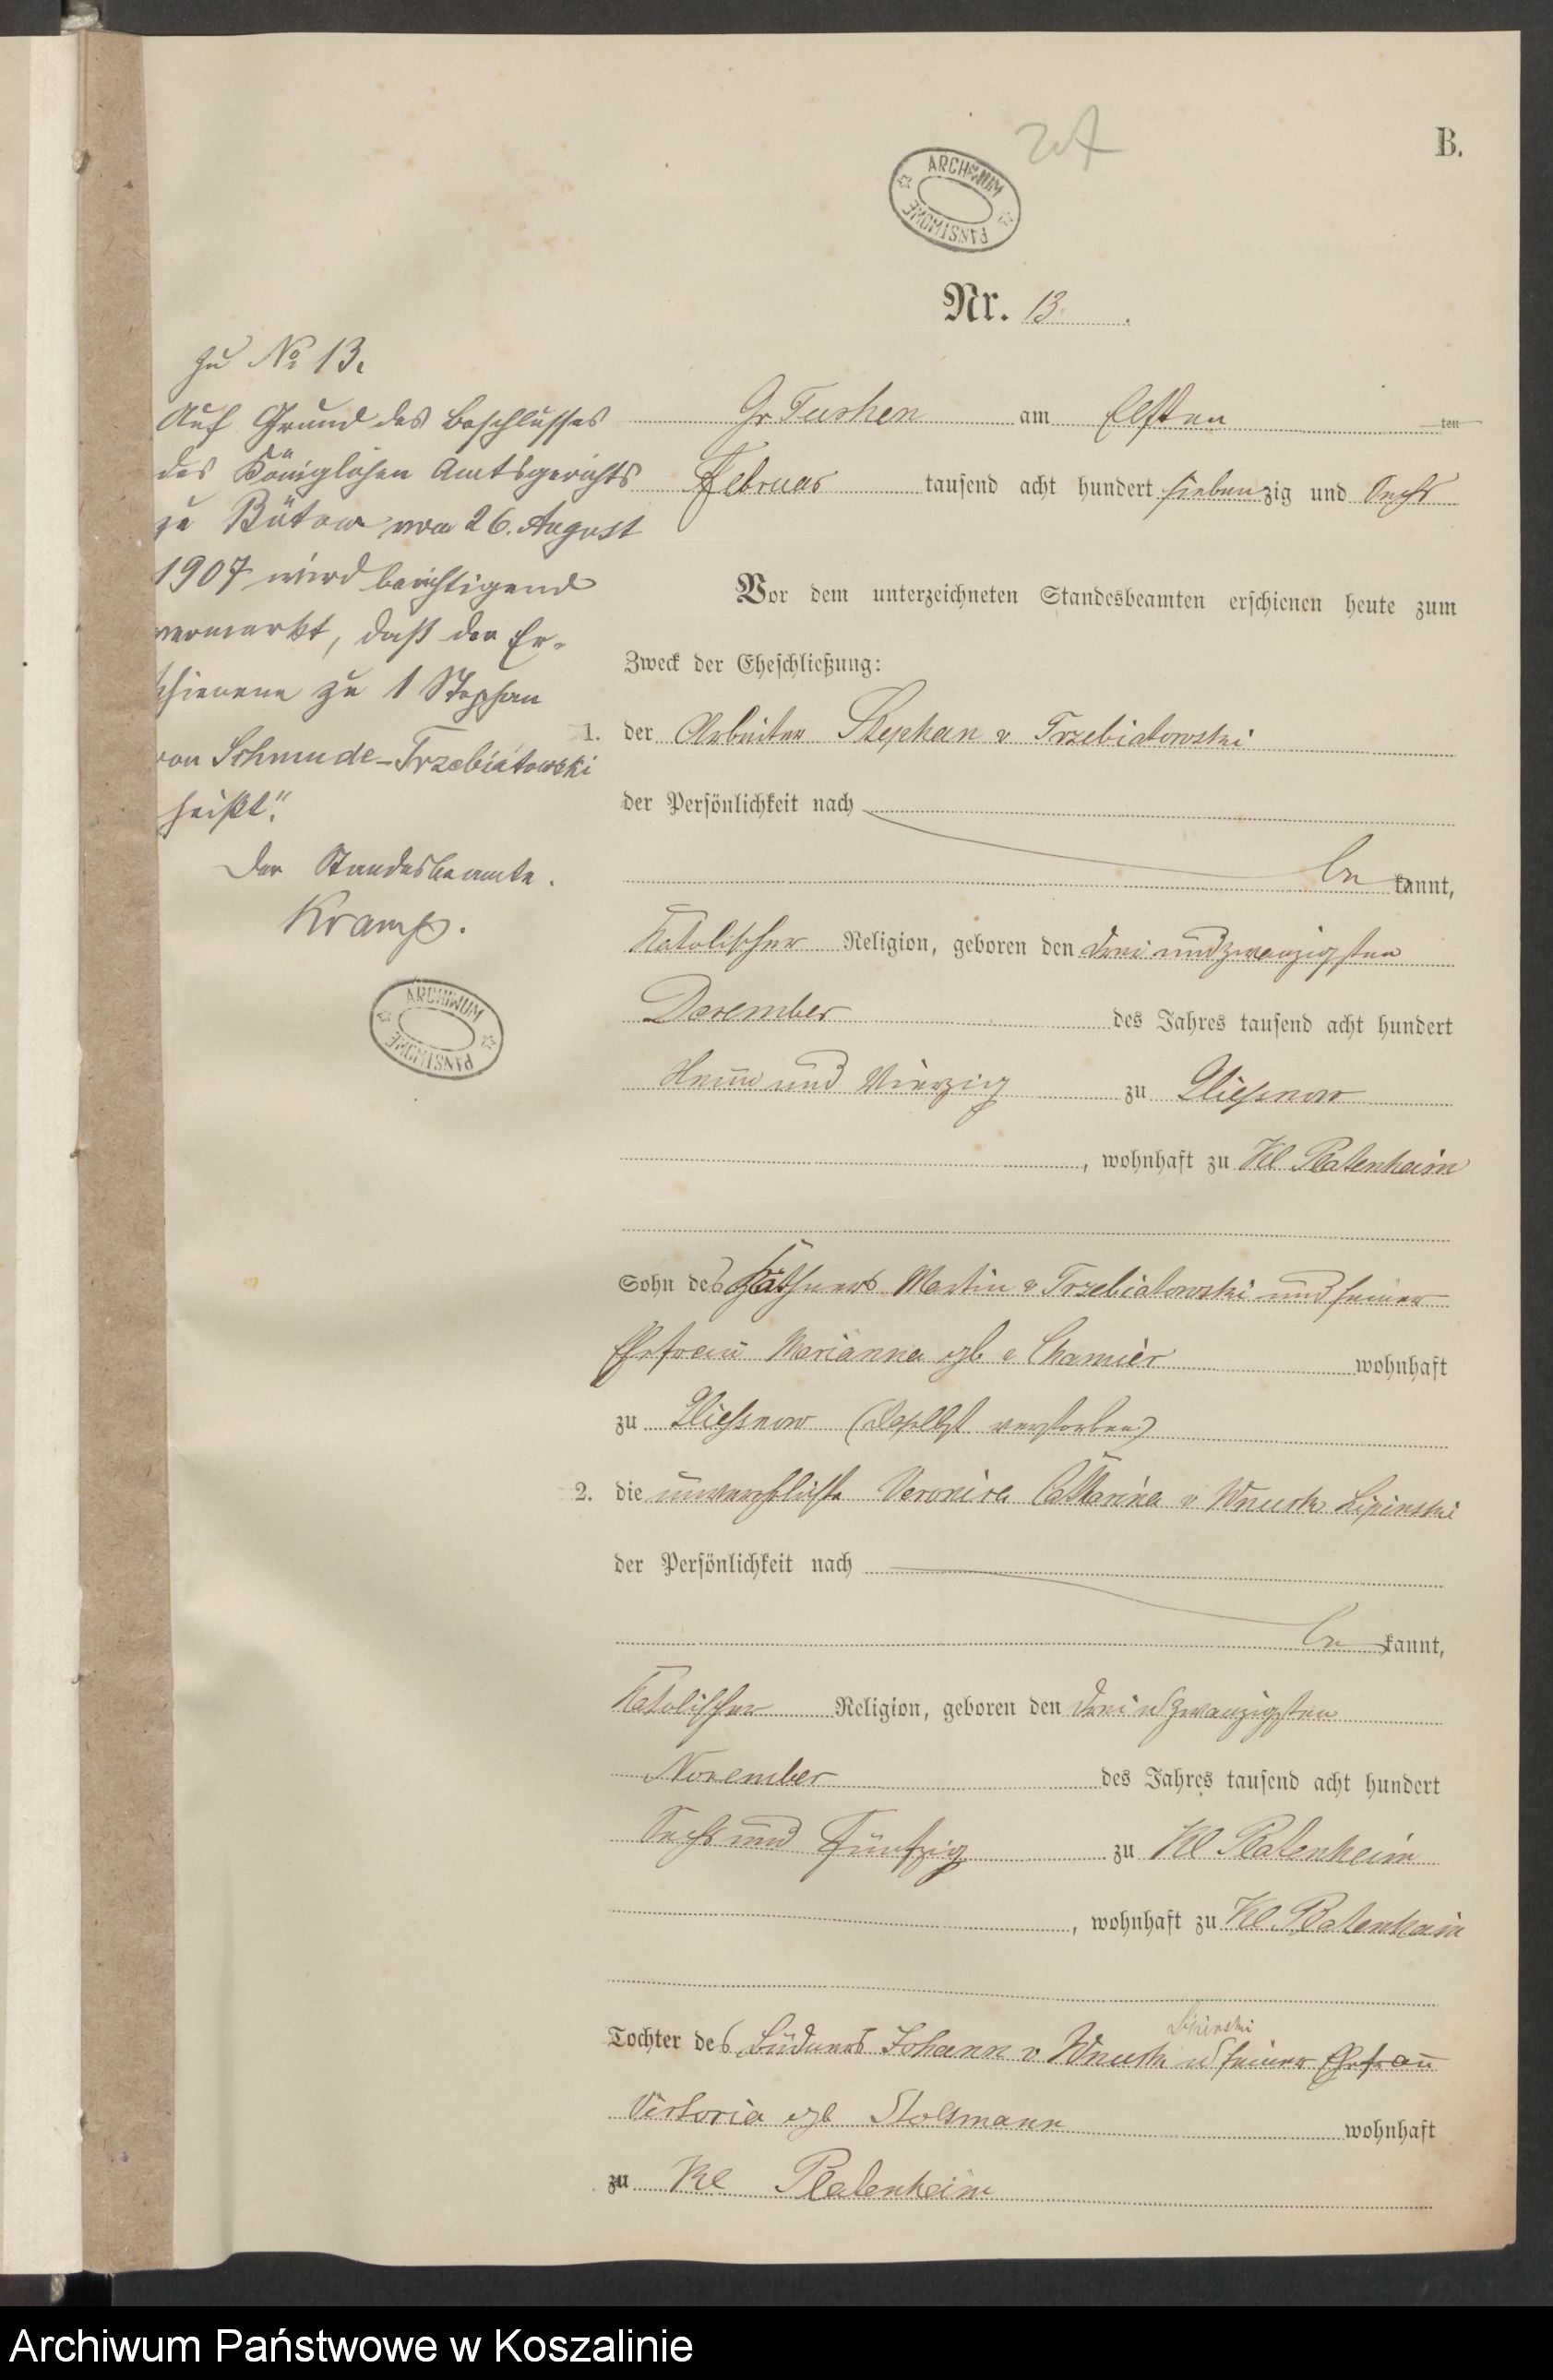 B.
ARCHIWUM
PAŃSTWOWE
Nr. 13.
Zu No 13.
Auf Grund des Beschlusses
des Königlichen Amtsgerichts
zu Bütow vom 26. August
1907 wird berichtigend
vermerkt, daß der Er-
schienene zu 1 Stephan
von Schmude-Trzebiatowski
heißt."
Der Standesbeamte.
Kramp.
ARCHIWUM
PAŃSTWOWE
Gr Tuchen am Elften ten
Februar tausend acht hundert siebenzig und Sechs
Vor dem unterzeichneten Standesbeamten erschienen heute zum
Zweck der Eheschließung:
1. der Arbeiter Stephan v Trzebiatowski
der Persönlichkeit nach
be kannt,
Katolischer Religion, geboren den drei und zwanzigsten
December des Jahres tausend acht hundert
Neun und Vierzig zu Gliesnow
, wohnhaft zu Kl Platenheim
Sohn des Käthners Martin v Trzebiatowski und seiner
Ehefrau Marianna geb v Chamier wohnhaft
zu Gliesnow (daselbst verstorben)
2. die unverehlichte Veronica Catharina v Wnuck Lipinski
der Persönlichkeit nach
be kannt,
Katolischer Religion, geboren den drei u zwanzigsten
November des Jahres tausend acht hundert
Sechs und Fünfzig zu Kl Platenheim
, wohnhaft zu Kl. Platenheim
Lipinski
Tochter des Büdners Johann v Wnuck u seiner Ehefrau
Victoria geb Stoltmann wohnhaft
zu Kl Platenheim
Archiwum Państwowe w Koszalinie